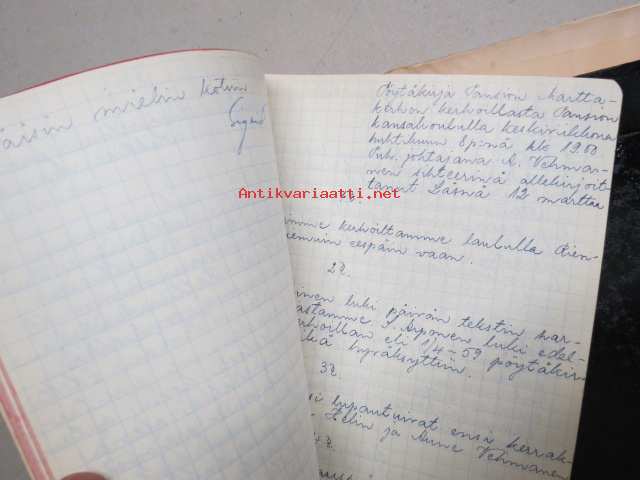 äisin mielin kotiin
Pöytäkirja Pansion Martta-
kerhon kerhoillasta Pansion
kansakoululla keskiviikkona
huhtikuun 8p:nä klo 19.00.
Puh. johtajana A. Vehma-
nen sihteerinä allekirjoit-
tanut Läsnä 12 marttaa
Antikvariaatti.net
imme kerhoiltamme laululla Rien-
iemuin eespäin vaan.
2§.
inen luki päivän tekstin har-
astamme S. Aponen luki edel-
rhoillan eli 1/4-59 pöytäkir-
ikä hyväksyttiin.
3§.
si lupautuivat ensi kerrak-
Helin ja Aune Vehmanen
4§.